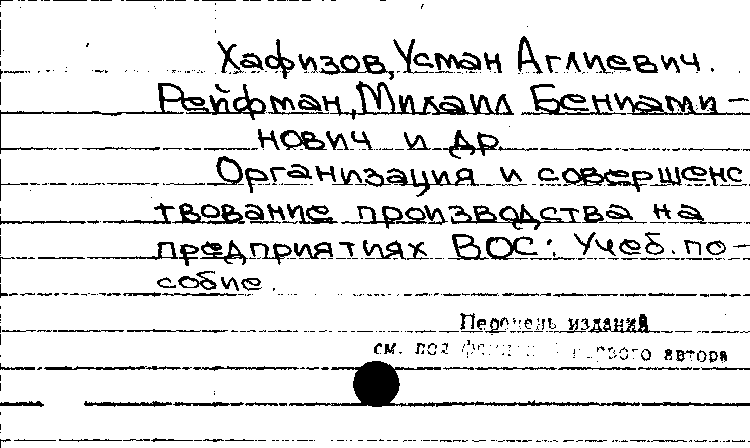 Хафизов, Усман Аглиевич.
Рейфман, Михаил Бениами-
нович и др.
Организация и совершенс
твование производства на
предприятиях ВОС: Учеб. по-
собие.
Перечень изданий
см. под первого автора